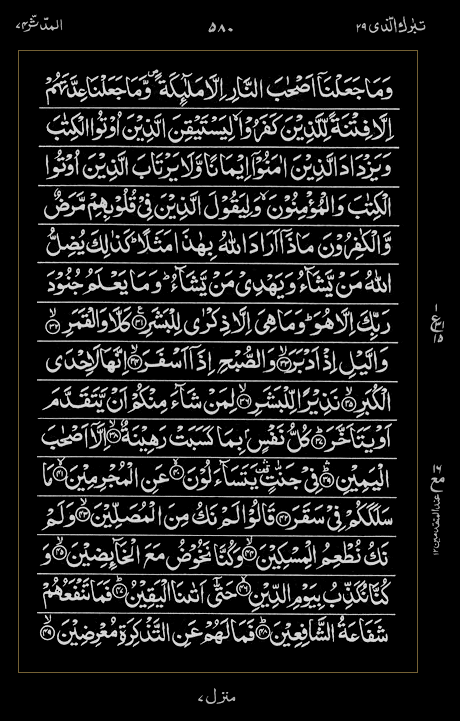 تبٰرك الّذى ٢٩ ٥٨٠ المدّثّر ٧٤
وَمَا جَعَلْنَاۤ اَصْحٰبَ النَّارِ اِلَّا مَلٰٓئِكَةً ۪ وَّمَا جَعَلْنَا عِدَّتَهُمْ
اِلَّا فِتْنَةً لِّلَّذِيْنَ كَفَرُوْا ۙ لِيَسْتَيْقِنَ الَّذِيْنَ اُوْتُوا الْكِتٰبَ
وَيَزْدَادَ الَّذِيْنَ اٰمَنُوْۤا اِيْمَانًا وَّلَا يَرْتَابَ الَّذِيْنَ اُوْتُوا
الْكِتٰبَ وَالْمُؤْمِنُوْنَ ۙ وَلِيَقُوْلَ الَّذِيْنَ فِيْ قُلُوْبِهِمْ مَّرَضٌ
وَّالْكٰفِرُوْنَ مَاذَاۤ اَرَادَ اللّٰهُ بِهٰذَا مَثَلًا ؕ كَذٰلِكَ يُضِلُّ
اللّٰهُ مَنْ يَّشَآءُ وَيَهْدِيْ مَنْ يَّشَآءُ ؕ وَمَا يَعْلَمُ جُنُوْدَ
رَبِّكَ اِلَّا هُوَ ؕ وَمَا هِيَ اِلَّا ذِكْرٰى لِلْبَشَرِ ﴿٣١﴾ كَلَّا وَالْقَمَرِ ﴿٣٢﴾
وَالَّيْلِ اِذْ اَدْبَرَ ﴿٣٣﴾ وَالصُّبْحِ اِذَاۤ اَسْفَرَ ﴿٣٤﴾ اِنَّهَا لَاِحْدَى
الْكُبَرِ ﴿٣٥﴾ نَذِيْرًا لِّلْبَشَرِ ﴿٣٦﴾ لِمَنْ شَآءَ مِنْكُمْ اَنْ يَّتَقَدَّمَ
اَوْ يَتَاَخَّرَ ﴿٣٧﴾ كُلُّ نَفْسٍۭ بِمَا كَسَبَتْ رَهِيْنَةٌ ﴿٣٨﴾ اِلَّاۤ اَصْحٰبَ
الْيَمِيْنِ ﴿٣٩﴾ فِيْ جَنّٰتٍ يَتَسَآءَلُوْنَ ﴿٤٠﴾ عَنِ الْمُجْرِمِيْنَ ﴿٤١﴾ مَا
سَلَكَكُمْ فِيْ سَقَرَ ﴿٤٢﴾ قَالُوْا لَمْ نَكُ مِنَ الْمُصَلِّيْنَ ﴿٤٣﴾ وَلَمْ
نَكُ نُطْعِمُ الْمِسْكِيْنَ ﴿٤٤﴾ وَكُنَّا نَخُوْضُ مَعَ الْخَآئِضِيْنَ ﴿٤٥﴾ وَ
كُنَّا نُكَذِّبُ بِيَوْمِ الدِّيْنِ ﴿٤٦﴾ حَتّٰۤى اَتٰىنَا الْيَقِيْنُ ﴿٤٧﴾ فَمَا تَنْفَعُهُمْ
شَفَاعَةُ الشّٰفِعِيْنَ ﴿٤٨﴾ فَمَا لَهُمْ عَنِ التَّذْكِرَةِ مُعْرِضِيْنَ ﴿٤٩﴾
منزل ٧